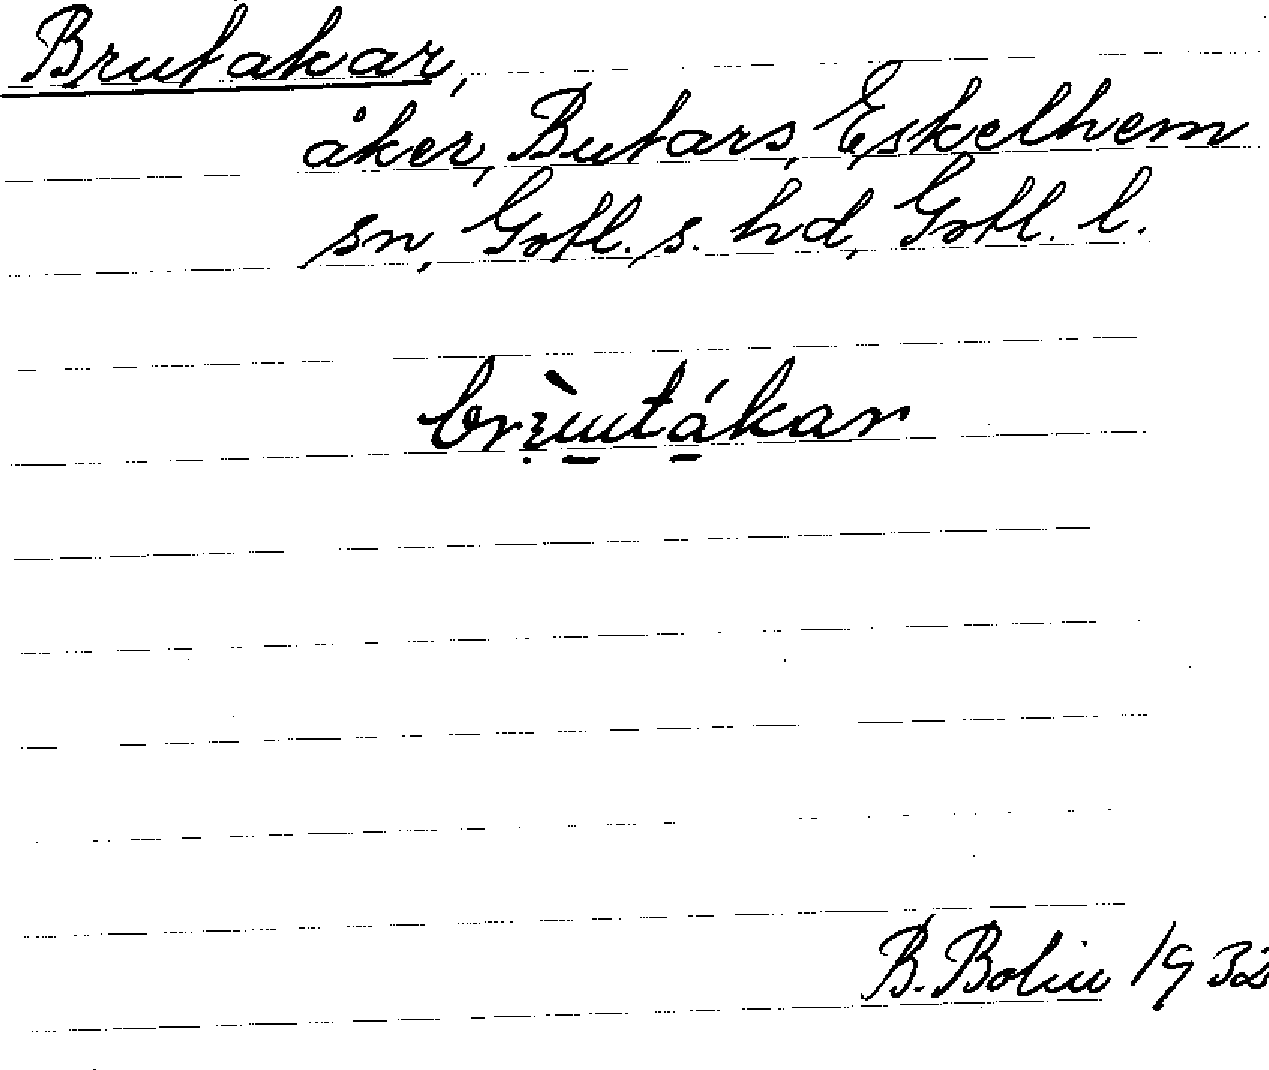 Brutakar,
åker, Butars, Eskelhem
sn, Gotl. s. hd, Gotl. l.
B. Bolin 1932